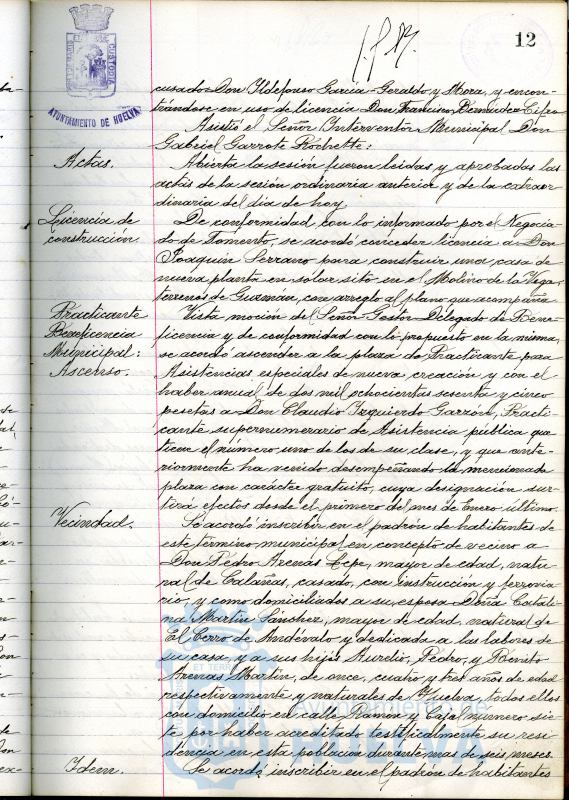 12
AYUNTAMIENTO DE HUELVA
cusado Don Ildefonso García-Geraldo y Mora, y encon-
trándose en uso de licencia Don Francisco Bermúdez Cifre.
Asistió el Señor Interventor Municipal Don
Gabriel Garrote Rochette:
Actas.
Abierta la sesión fueron leidas y aprobadas las
actas de la sesión ordinaria anterior y de la extraor-
dinaria del día de hoy.
Licencia de
construcción.
De conformidad con lo informado por el Negocia-
do de Fomento, se acordó conceder licencia a Don
Joaquín Serrano para construir una casa de
nueva planta en solar sito en el Molino de la Vega,
terrenos de Guzmán, con arreglo al plano que acompaña.
Practicante
Beneficencia
Municipal:
Ascenso.
Vista moción del Señor Gestor Delegado de Bene-
ficencia y de conformidad con lo propuesto en la misma,
se acordó ascender a la plaza de Practicante para
Asistencias especiales de nueva creación y con el
haber anual de dos mil ochocientas sesenta y cinco
pesetas a Don Claudio Izquierdo Garzón, Practi-
cante supernumerario de Asistencia pública que
tiene el número uno de los de su clase, y que ante-
riormente ha venido desempeñando la mencionada
plaza con carácter gratuito, cuya designación sur-
tirá efectos desde el primero del mes de Enero último.
Vecindad.
Se acordó inscribir en el padrón de habitantes de
este término municipal en concepto de vecino a
Don Pedro Arenas Lepe, mayor de edad, natu-
ral de Calañas, casado, con instrucción y ferrovia-
rio, y como domiciliados a su esposa Doña Catali-
na Martín Sánchez, mayor de edad, natural de
El Cerro de Andévalo y dedicada a las labores de
su casa, y a sus hijos Aurelio, Pedro, y Benito
Arenas Martín, de once, cuatro y tres años de edad
respectivamente y naturales de Huelva, todos ellos
con domicilio en calle Ramón y Cajal número sie-
te por haber acreditado testificalmente su resi-
dencia en esta población durante mas de seis meses.
Idem.
Se acordó inscribir en el padrón de habitantes